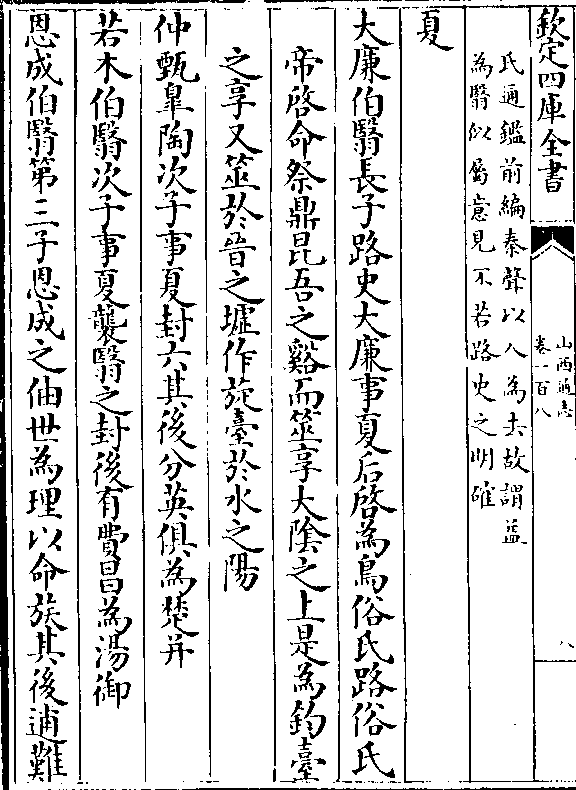 欽定四庫全書
山西通志
卷一百八
八
氏通鑑前編秦聲以入為去故謂益
為翳似屬意見不若路史之明確
夏
大廉伯翳長子路史大廉事夏后啓為鳥俗氏路俗氏
帝啓命祭鼎昆吾之谿而筮享大陰之上是為鈞臺
之享又筮於晉之墟作旋臺於水之陽
仲甄臯陶次子事夏封六其後分英俱為楚并
若木伯翳次子事夏襲翳之封後有費昌為湯御
恩成伯翳第三子恩成之伷世為理以命族其後逋難